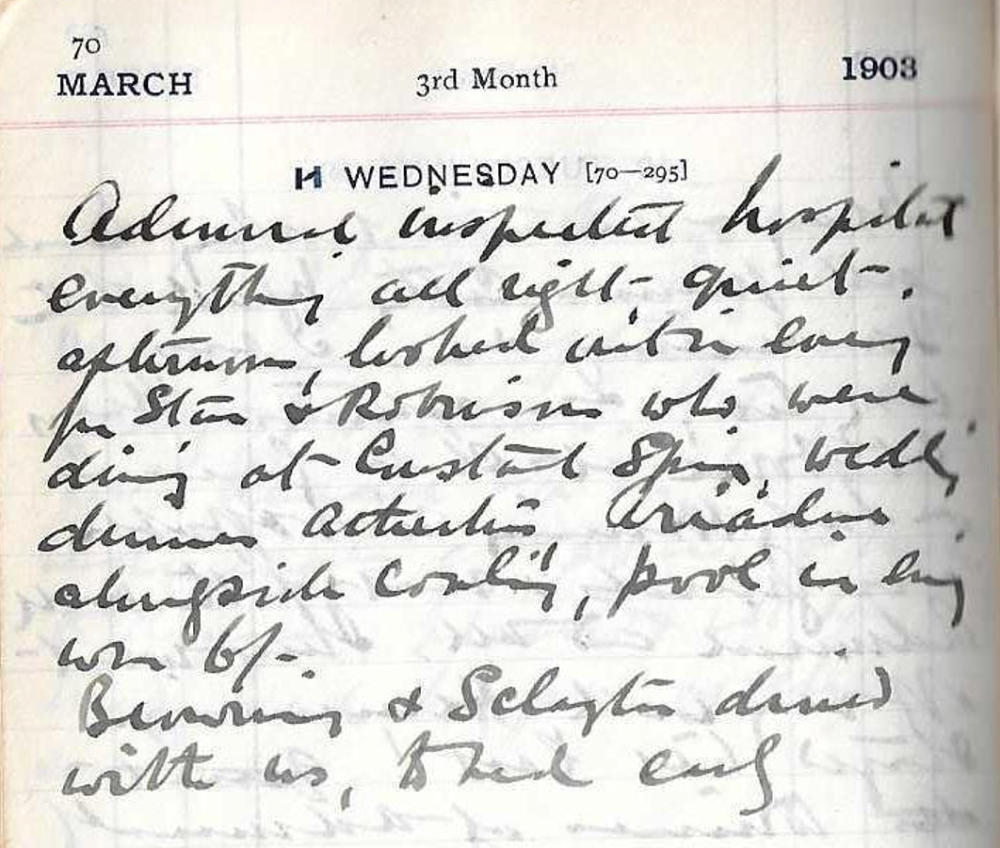 70
MARCH 3rd Month 1903
11 WEDNESDAY [70—295]
Admiral inspected hospital
everything all right quiet.
afternoon, looked in eveng
for & Robinson who were
dining at Spring, wedding
dinner Ariadne
alongside coaling, pool in eveng
won 6/-.
Browning & Sclayter dined
with us, to bed early